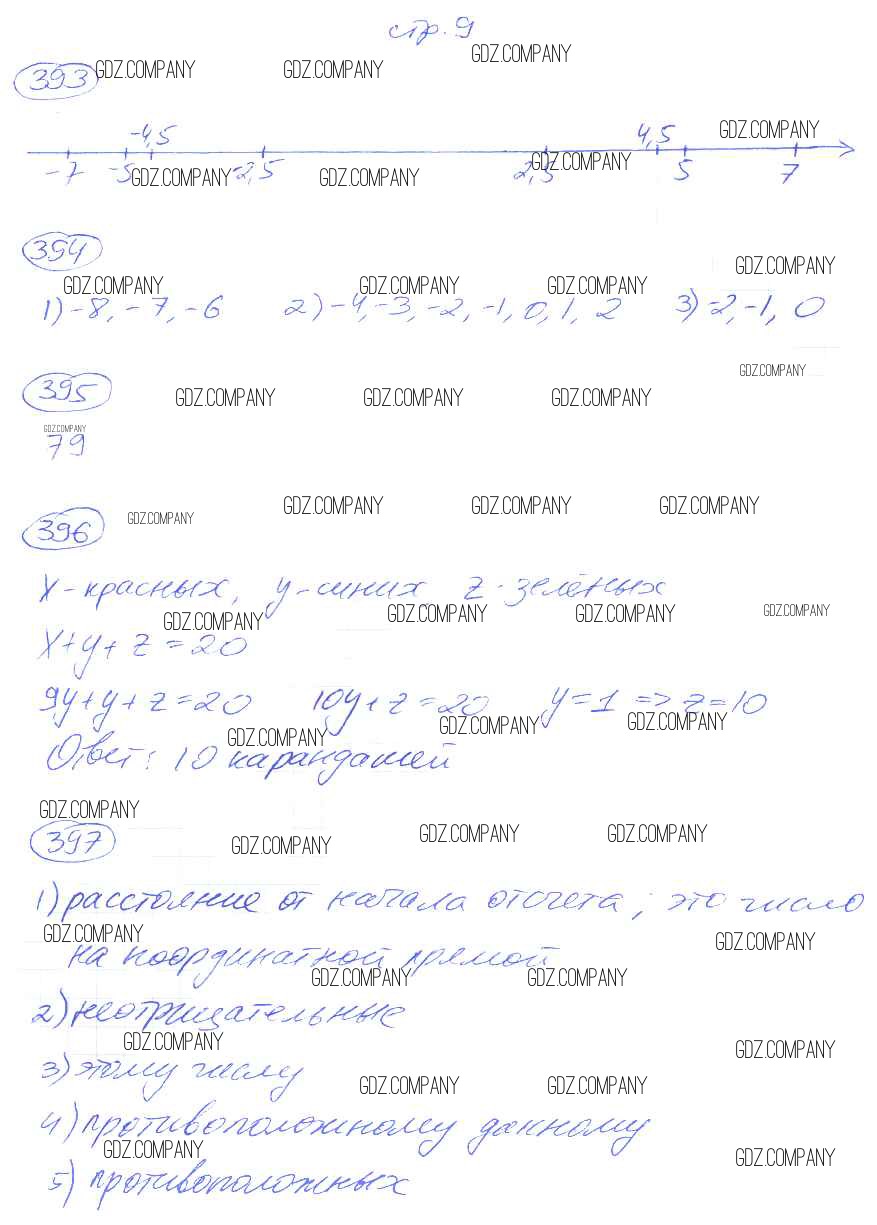 стр. 9
GDZ.COMPANY GDZ.COMPANY GDZ.COMPANY
393
-4,5 4,5 GDZ.COMPANY
-7 -5 -2,5 2,5 5 7
GDZ.COMPANY GDZ.COMPANY GDZ.COMPANY
394
GDZ.COMPANY GDZ.COMPANY GDZ.COMPANY GDZ.COMPANY
1) -8, -7, -6 2) -4, -3, -2, -1, 0, 1, 2 3) -2, -1, 0
GDZ.COMPANY
395 GDZ.COMPANY GDZ.COMPANY GDZ.COMPANY
GDZ.COMPANY
79
GDZ.COMPANY GDZ.COMPANY GDZ.COMPANY
396 GDZ.COMPANY
x - красных, y - синих, z - зелёных
GDZ.COMPANY GDZ.COMPANY GDZ.COMPANY GDZ.COMPANY
x+y+z=20
9y+y+z=20 10y+z=20 y=1 => z=10
GDZ.COMPANY GDZ.COMPANY GDZ.COMPANY
Ответ: 10 карандашей
GDZ.COMPANY
397 GDZ.COMPANY GDZ.COMPANY GDZ.COMPANY
1) расстояние от начала отсчета; это число
GDZ.COMPANY GDZ.COMPANY
на координатной прямой
GDZ.COMPANY GDZ.COMPANY
2) неотрицательные
GDZ.COMPANY GDZ.COMPANY
3) этому числу
GDZ.COMPANY GDZ.COMPANY
4) противоположному данному
GDZ.COMPANY GDZ.COMPANY
5) противоположных